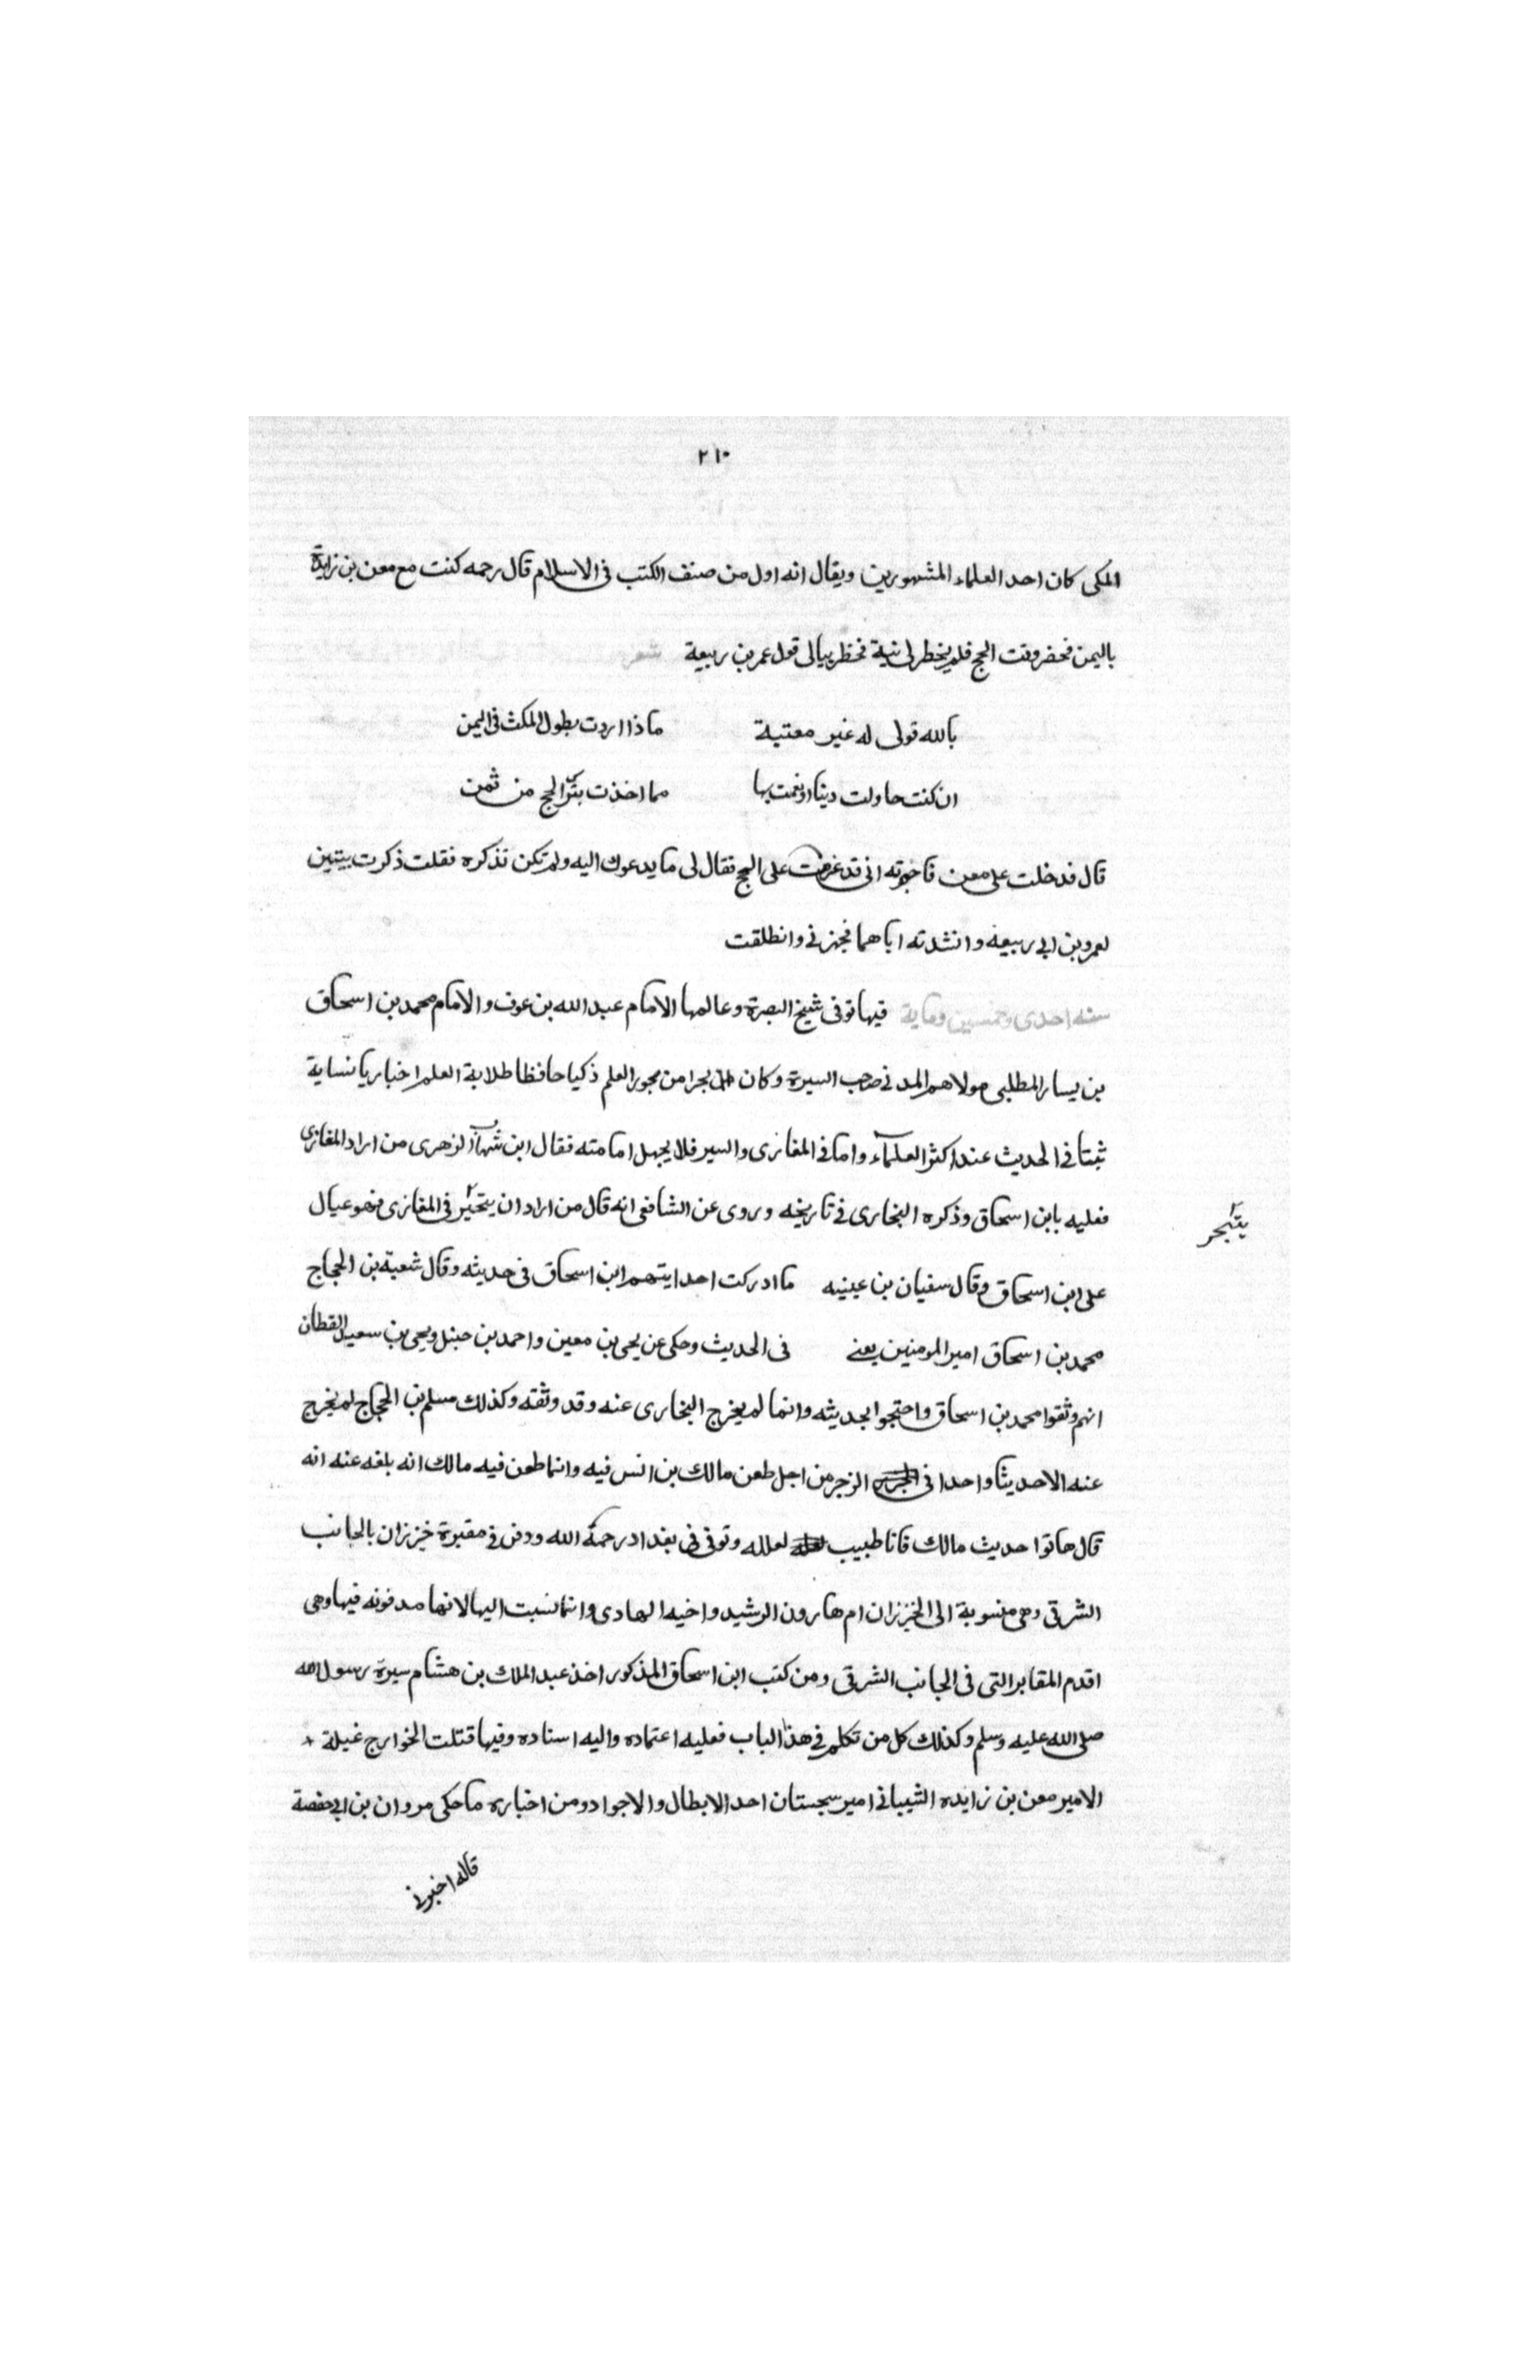 ٢١٠
المكى كان احد العلماء المشهورين ويقال انه اول من صنف الكتب فى الاسلام قال رحمه كنت مع معن بن زايدة
باليمن فحضر وقت الحج فلم يخطر لى نية فخطر ببالى قول عمر بن ربيعة شعر
بالله قولى له غير معتبة ماذا اردت بطول المكث فى اليمن
ان كنت حاولت دينا او نعمت بها مما اخذت بترك الحج من ثمن
قال فدخلت على معن فاخبرته انى قد عزمت على الحج فقال لى ما يدعوك اليه ولم تكن تذكره فقلت ذكرت بيتين
لعمرو بن ابى ربيعه وانشدته اياهما فجهزنى وانطلقت
سنه احدى وخمسين وماية فيها توفى شيخ البصرة وعالمها الامام عبد الله بن عوف والامام محمد بن اسحاق
بن يسار المطلبى مولاهم المدنى صاحب السيرة وكان بحرا من بحور العلم ذكيا حافظا طلابة العلم اخباريا نساية
ثبتا فى الحديث عند اكثر العلماء واما فى المغازى والسير فلا يجهل امامته فقال ابن شهاب الزهرى من اراد المغازى
فعليه بابن اسحاق وذكره البخارى فى تاريخه وروى عن الشافعى انه قال من اراد ان يتحير فى المغازى فهو عيال
يتبحر
على ابن اسحاق وقال سفيان بن عيينه ما ادركت احدا يتهم ابن اسحاق فى حديثه وقال شعبة بن الحجاج
محمد بن اسحاق امير المومنين يعنى فى الحديث وحكى عن يحى بن معين واحمد بن حنبل ويحى بن سعيد القطان
انهم وثقوا محمد بن اسحاق واحتجوا بحديثه وانما لم يخرج البخارى عنه وقد وثقه وكذلك مسلم بن الحجاج لم يخرج
عنه الا حديثا واحدا فى الزجر من اجل طعن مالك بن انس فيه وانما طعن فيه مالك انه بلغه عنه انه
قال هاتوا حديث مالك فانا طبيب لعلله وتوفى فى بغداد رحمة الله ودفن فى مقبرة خيزران بالجانب
الشرقى وهى منسوبة الى الخيزران ام هارون الرشيد واخيه الهادى وانما نسبت اليها لانها مدفونه فيها وهى
اقدم المقابر التى فى الجانب الشرقى ومن كتب ابن اسحاق المذكور اخذ عبد الملك بن هشام سيرة رسول الله
صلى الله عليه وسلم وكذلك كل من تكلم فى هذا الباب فعليه اعتماده واليه اسناده وفيها قتلت الخوارج غيلة
الامير معن بن زايده الشيبانى امير سجستان احد الابطال والاجواد ومن اخباره ما حكى مروان بن ابى حفصة
قاله اخبرنى